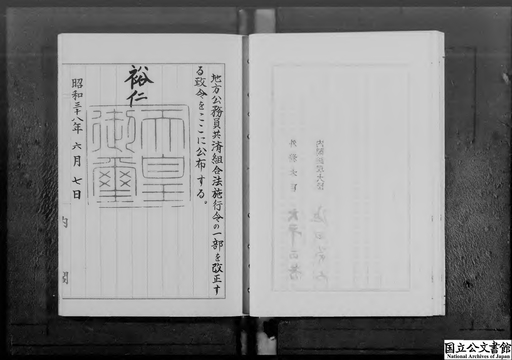 地方公務員共済組合法施行令の一部を改正す
る政令をここに公布する。
裕仁
天皇
御璽
昭和三十八年 六月 七日
内閣
国立公文書館
National Archives of Japan